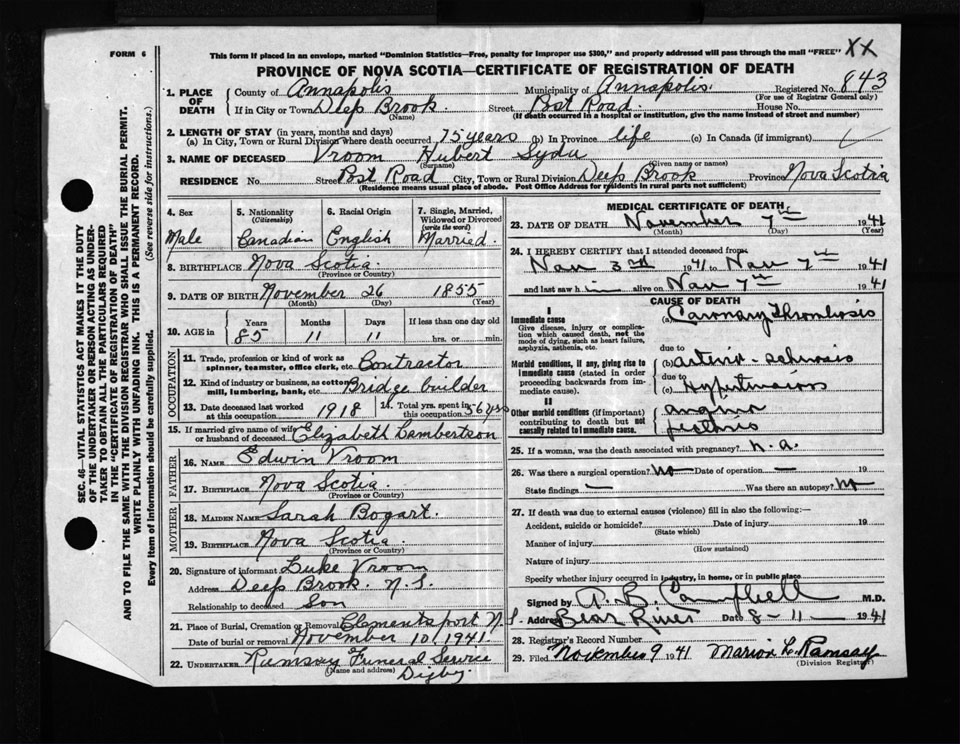 FORM 6
This form if placed in an envelope, marked "Dominion Statistics—Free, penalty for improper use $300," and properly addressed will pass through the mail "FREE"
XX
PROVINCE OF NOVA SCOTIA—CERTIFICATE OF REGISTRATION OF DEATH
SEC. 46—VITAL STATISTICS ACT MAKES IT THE DUTY
OF THE UNDERTAKER OR PERSON ACTING AS UNDER-
TAKER TO OBTAIN ALL THE PARTICULARS REQUIRED
IN THE "CERTIFICATE OF REGISTRATION OF DEATH"
AND TO FILE THE SAME WITH THE DIVISION REGISTRAR WHO SHALL ISSUE THE BURIAL PERMIT.
WRITE PLAINLY WITH UNFADING INK. THIS IS A PERMANENT RECORD.
Every item of Information should be carefully supplied. (See reverse side for instructions.)
1. PLACE OF DEATH County of Annapolis Municipality of Annapolis Registered No. 843
(For use of Registrar General only)
If in City or Town Deep Brook Street Post Road House No.
(Name) (If death occurred in a hospital or institution, give the name instead of street and number)
2. LENGTH OF STAY (in years, months and days)
(a) In City, Town or Rural Division where death occurred 75 years (b) In Province life (c) In Canada (if immigrant)
3. NAME OF DECEASED Vroom Hubert
(Surname) (Given name or names)
RESIDENCE No. Street Post Road City, Town or Rural Division Deep Brook Province Nova Scotia
(Residence means usual place of abode. Post Office Address for residents in rural parts not sufficient)
4. Sex Male
5. Nationality (Citizenship) Canadian
6. Racial Origin English
7. Single, Married, Widowed or Divorced (write the word) Married.
8. BIRTHPLACE Nova Scotia
(Province or Country)
9. DATE OF BIRTH November 26 1855
(Month) (Day) (Year)
10. AGE in Years 85 Months 11 Days 11 If less than one day old hrs. or min.
OCCUPATION
11. Trade, profession or kind of work as spinner, teamster, office clerk, etc. Contractor
12. Kind of industry or business, as cotton mill, lumbering, bank, etc. Bridge builder
13. Date deceased last worked at this occupation 1918
14. Total yrs. spent in this occupation 56 yrs
15. If married give name of wife or husband of deceased Elizabeth Lambertson
FATHER
16. NAME Edwin Vroom
17. BIRTHPLACE Nova Scotia
(Province or Country)
MOTHER
18. MAIDEN NAME Sarah Bogart.
19. BIRTHPLACE Nova Scotia
(Province or Country)
20. Signature of informant Luke Vroom
Address Deep Brook. N.S.
Relationship to deceased Son
21. Place of Burial, Cremation or Removal Clementsport N.S.
Date of burial or removal November 10, 1941
22. UNDERTAKER Ramsay Funeral Service
(Name and address) Digby
MEDICAL CERTIFICATE OF DEATH
23. DATE OF DEATH November 7th 1941
(Month) (Day) (Year)
24. I HEREBY CERTIFY that I attended deceased from
Nov 3rd 1941 to Nov 7th 1941
and last saw him alive on Nov 7th 1941
CAUSE OF DEATH
I
Immediate cause (a) Coronary Thrombosis
Give disease, injury or complication which caused death, not the mode of dying, such as heart failure, asphyxia, asthenia, etc.
due to
Morbid conditions, if any, giving rise to immediate cause (stated in order proceeding backwards from immediate cause).
(b) arterio-sclerosis
due to
(c) Hypertension
II
Other morbid conditions (if important) contributing to death but not causally related to immediate cause.
angina
25. If a woman, was the death associated with pregnancy? n.a.
26. Was there a surgical operation? no Date of operation — 19
State findings — Was there an autopsy? no
27. If death was due to external causes (violence) fill in also the following:—
Accident, suicide or homicide? Date of injury 19
(State which)
Manner of injury
(How sustained)
Nature of injury
Specify whether injury occurred in industry, in home, or in public place
Signed by A. B. Campbell M.D.
Address Bear River Date 8-11 1941
28. Registrar's Record Number
29. Filed November 9 1941 Marion L. Ramsay
(Division Registrar)